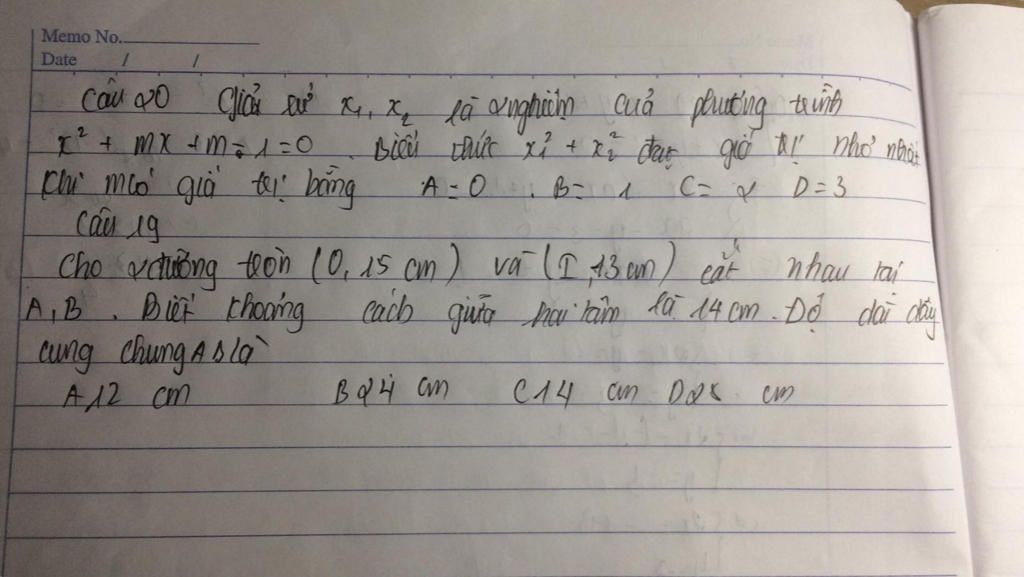 Memo No.
Date / /
Câu 20 Giả sử x₁, x₂ là 2 nghiệm cuả phương trình
x² + mx + m - 1 = 0 . Biểu thức x₁² + x₂² đạt giá trị nhỏ nhất
khi m có giá trị bằng A = 0 . B = 1 C = 2 D = 3
Câu 19
Cho 2 đường tròn (O, 15 cm) và (I, 13 cm) cắt nhau tại
A, B . Biết khoảng cách giữa hai tâm là 14 cm . Độ dài dây
cung chung AB là
A 12 cm B 24 cm C 14 cm D cm